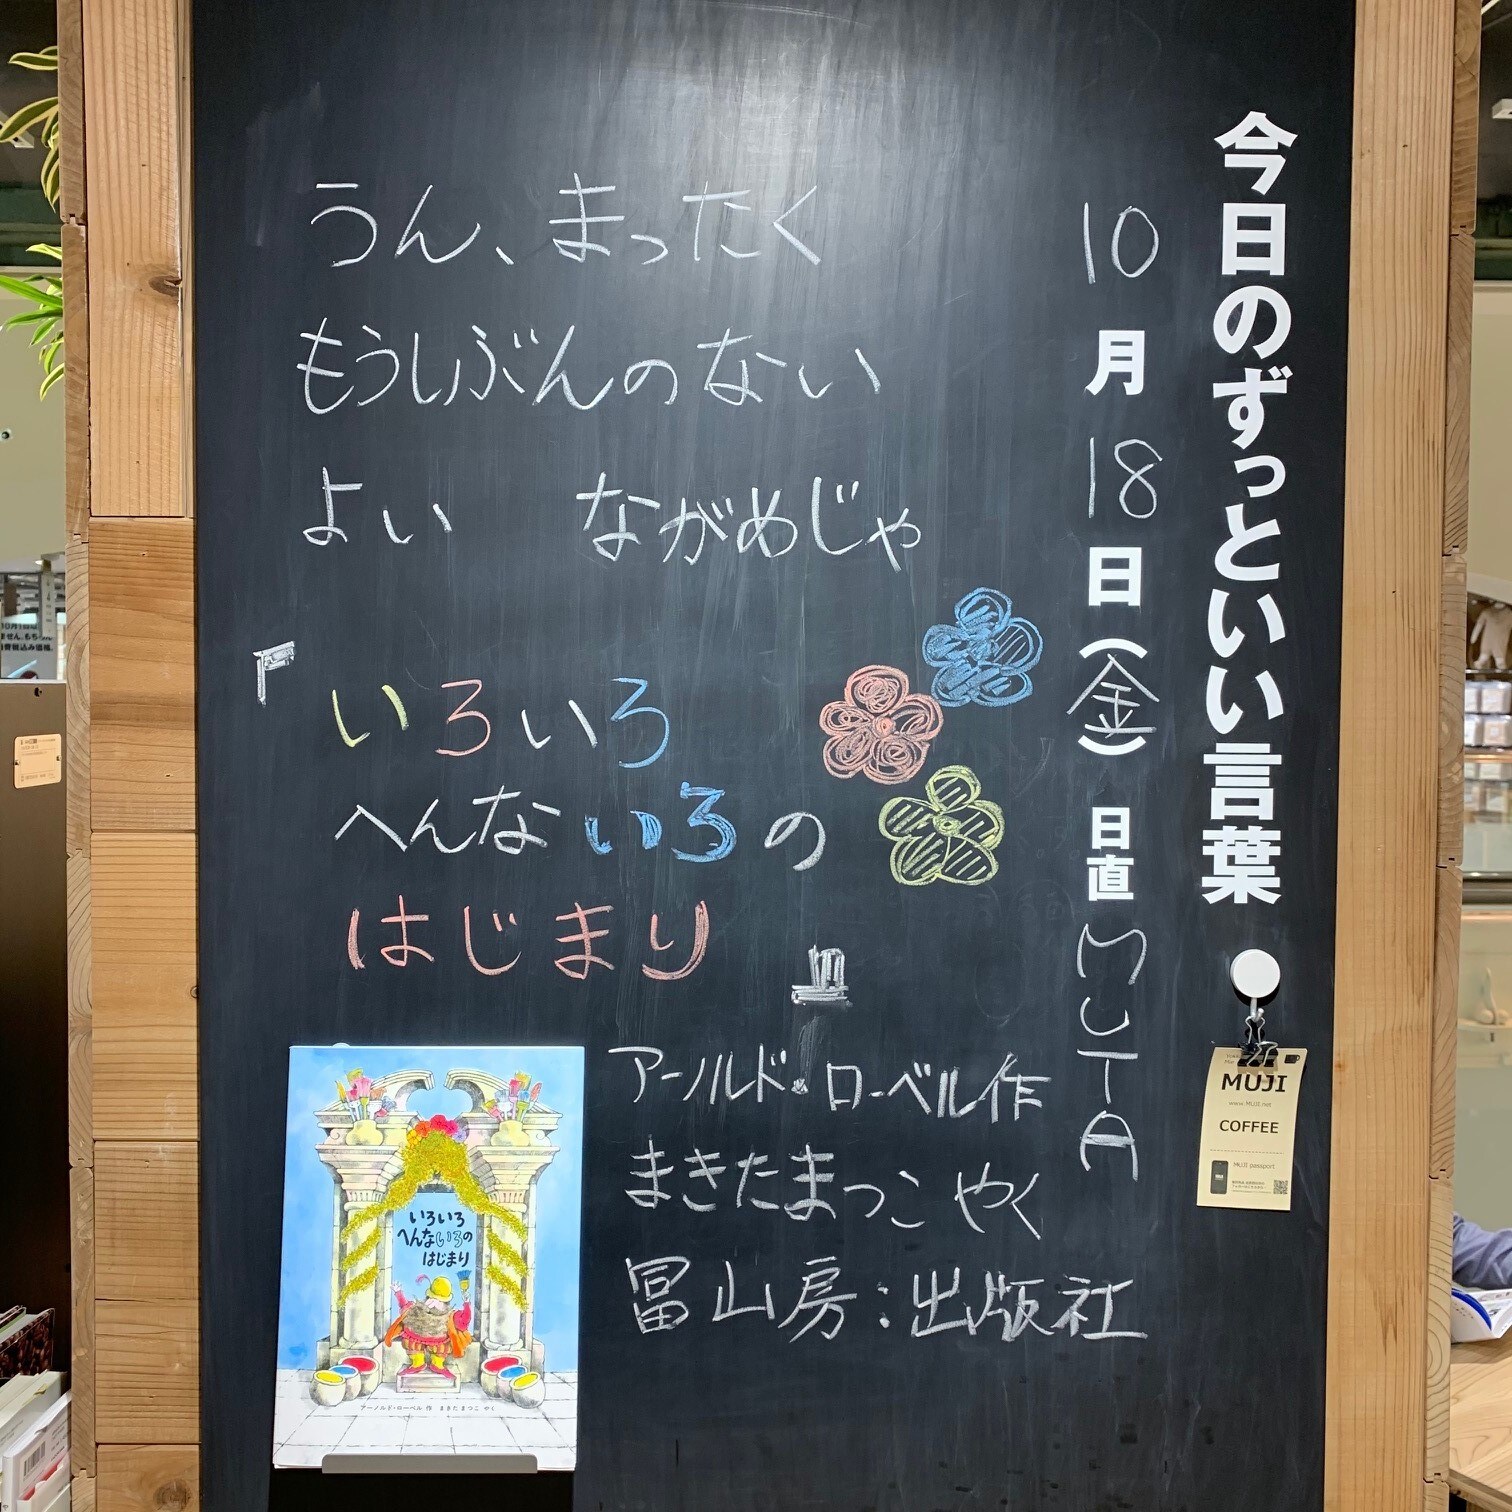 今日のずっといい言葉●
10月18日(金) 日直 MUTA
うん、まったく
もうしぶんのない
よい ながめじゃ
『いろいろ
へんないろの
はじまり』
アーノルド・ローベル作
まきたまつこ やく
冨山房：出版社
いろいろ
へんないろの
はじまり
アーノルド・ローベル 作 まきたまつこ やく
MUJI
www.MUJI.net
COFFEE
MUJI passport